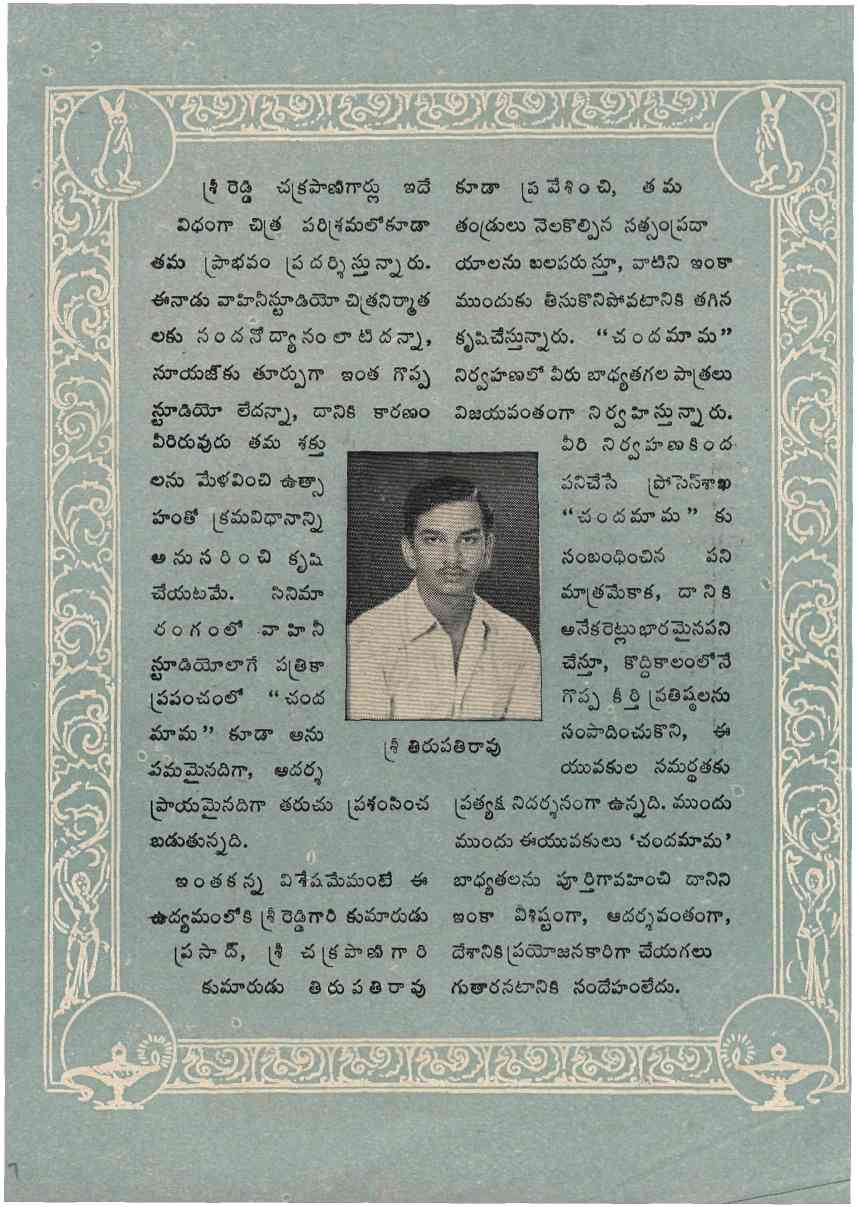 శ్రీ రెడ్డి చక్రపాణిగార్లు ఇదే
విధంగా చిత్ర పరిశ్రమలోకూడా
తమ ప్రాభవం ప్రదర్శిస్తున్నారు.
ఈనాడు వాహినీస్టూడియో చిత్రనిర్మాత
లకు నందనోద్యానంలాటిదన్నా,
సూయజ్‌కు తూర్పుగా ఇంత గొప్ప
స్టూడియో లేదన్నా, దానికి కారణం
వీరిరువురు తమ శక్తు
లను మేళవించి ఉత్సా
హంతో క్రమవిధానాన్ని
అనుసరించి కృషి
చేయటమే. సినిమా
రంగంలో వాహినీ
స్టూడియోలాగే పత్రికా
ప్రపంచంలో “చంద
మామ” కూడా అను
పమమైనదిగా, ఆదర్శ
ప్రాయమైనదిగా తరుచు ప్రశంసించ
బడుతున్నది.
ఇంతకన్న విశేషమేమంటే ఈ
ఉద్యమంలోకి శ్రీ రెడ్డిగారి కుమారుడు
ప్రసాద్, శ్రీ చక్రపాణిగారి
కుమారుడు తిరుపతిరావు
కూడా ప్రవేశించి, తమ
తండ్రులు నెలకొల్పిన సత్సంప్రదా
యాలను బలపరుస్తూ, వాటిని ఇంకా
ముందుకు తీసుకొనిపోవటానికి తగిన
కృషిచేస్తున్నారు. “చందమామ”
నిర్వహణలో వీరు బాధ్యతగల పాత్రలు
విజయవంతంగా నిర్వహిస్తున్నారు.
వీరి నిర్వహణకింద
పనిచేసే ప్రోసెస్‌శాఖ
“చందమామ” కు
సంబంధించిన పని
మాత్రమేకాక, దానికి
అనేకరెట్లుభారమైనపని
చేస్తూ, కొద్దికాలంలోనే
గొప్ప కీర్తి ప్రతిష్ఠలను
సంపాదించుకొని, ఈ
యువకుల సమర్థతకు
ప్రత్యక్ష నిదర్శనంగా ఉన్నది. ముందు
ముందు ఈయువకులు ‘చందమామ’
బాధ్యతలను పూర్తిగావహించి దానిని
ఇంకా విశిష్టంగా, ఆదర్శవంతంగా,
దేశానికిప్రయోజనకారిగా చేయగలు
గుతారనటానికి సందేహంలేదు.
శ్రీ తిరుపతిరావు
7